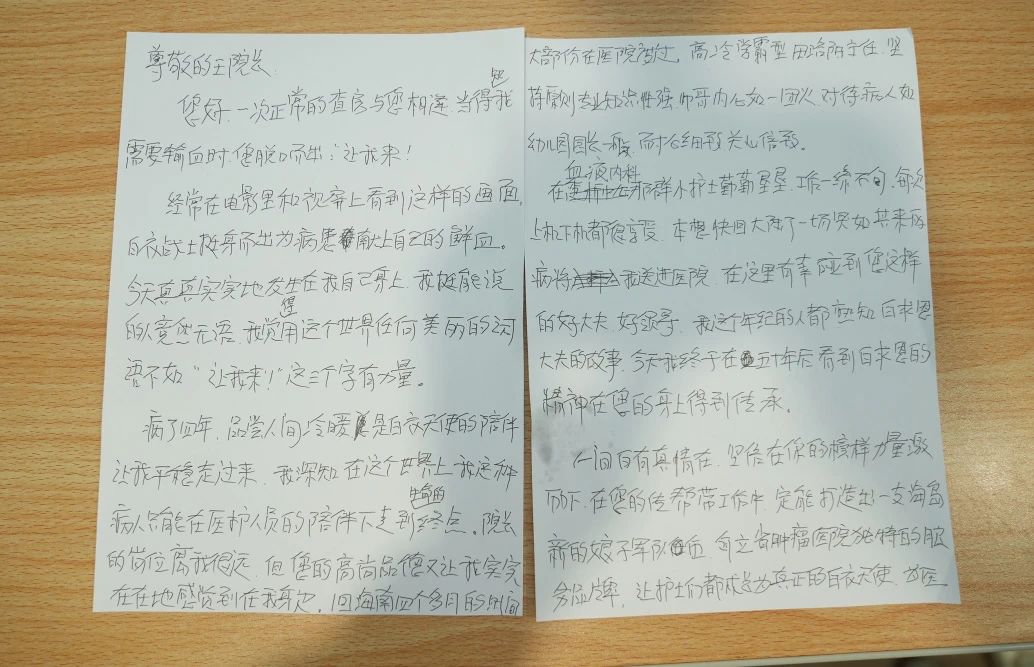 尊敬的王院长:
您好. 一次正常的查房与您相逢 当得知我
需要输血时. 您脱口而出:"让我来!
经常在电影里和视屏上看到这样的画面,
白衣战士挺身而出为病患献上自己的鲜血。
今天真真实实地发生在我自己身上. 我挺能说
的人竟然无语. 我觉得用这个世界任何美丽的词
语不如"让我来!"这三个字有力量。
病了四年. 品尝人间冷暖是白衣天使的陪伴
让我平稳走过来. 我深知在这个世界上我这种
病人只能在医护人员的陪伴下走到生命的终点。院长
的岗位离我很远. 但您的高尚品德又让我实实
在在地感觉到在我身边. 回海南四个多月的时间
大部份在医院渡过. 高冷学霸型 主任. 坚
持原则 专业知识 强. 帅哥内心如一团火 对待病人如
幼儿园园长一般. 而 细致 关心倍致。
在血液内科那群小护士勤勤垦垦. 工作一丝不苟. 每次
上机下机都很享受. 本想快回大陆了一场突如其来的
病将我送进医院. 在这里有幸碰到您这样
的好大夫. 好领导. 我这个年纪的人都熟知白求恩
大夫的故事. 今天我终于在五十年后看到白求恩的
精神在您的身上得到传承。
人间自有真情在. 坚信在你的榜样力量激
励下. 在您的传帮带工作中. 定能打造出一支海岛
新的娘子军队伍. 省肿瘤医院独特的服
务品牌. 让护士们都成为真正的白衣天使. 为医